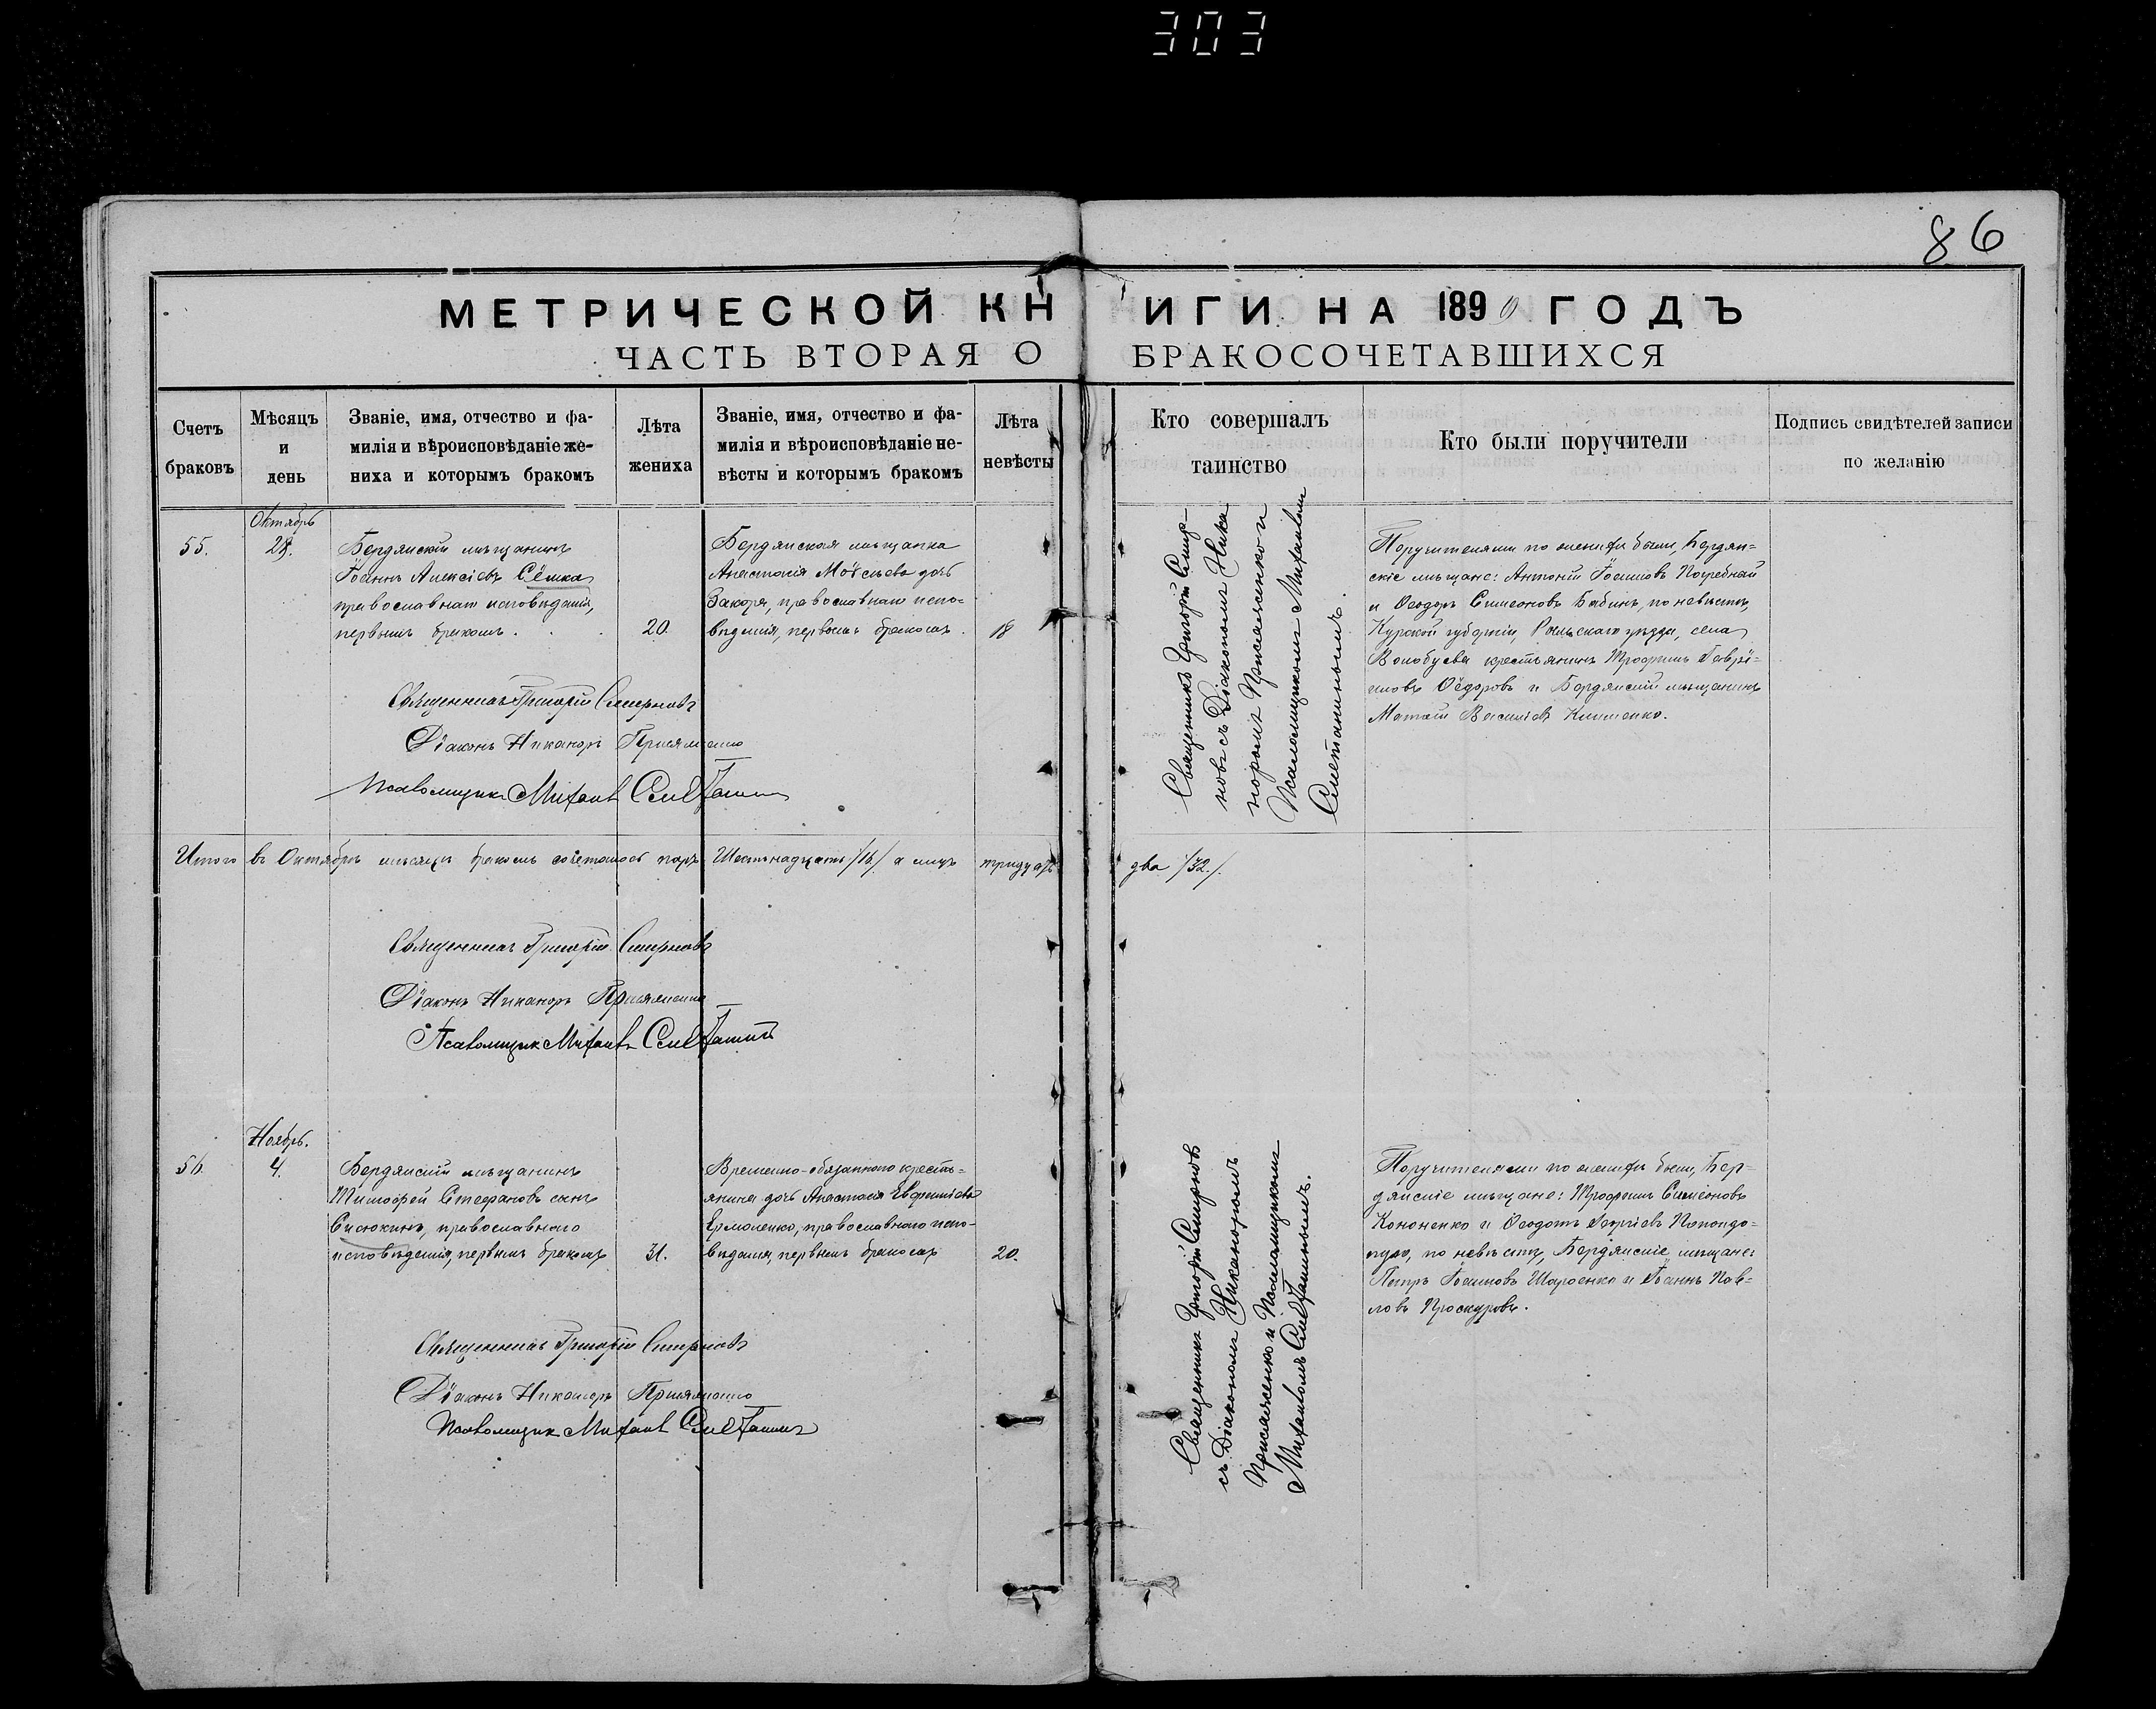 303
86
МЕТРИЧЕСКОЙ КН
ИГИ НА 1890 ГОДЪ
ЧАСТЬ ВТОРАЯ О
БРАКОСОЧЕТАВШИХСЯ
Счетъ
браковъ
Мѣсяцъ
и
день
Званіе, имя, отчество и фа-
милія и вѣроисповѣданіе же-
ниха и которымъ бракомъ
Лѣта
жениха
Званіе, имя, отчество и фа-
милія и вѣроисповѣданіе не-
вѣсты и которымъ бракомъ
Лѣта
невѣсты
Кто совершалъ
таинство
Кто были поручители
Подпись свидѣтелей записи
по желанію
55.
Октябрь
Бердянскій мѣщанинъ
Іоаннъ Алексіевъ Сёмка
православнаго исповѣданія,
первымъ бракомъ.
20.
Бердянская мѣщанка
Анастасія Моѵсеева дочь
православнаго испо-
вѣданія, первымъ бракомъ.
18
Священникъ Григорій Смир-
новъ съ Діакономъ Ника
норомъ Присяженко и
Псаломщикомъ Михаиломъ
Сметанинымъ.
Поручителями по женихѣ были, Бердян-
скіе мѣщане: Антоній Іоанновъ Погребной
и Ѳеодоръ Симеоновъ Бабинъ, по невѣстѣ,
Курской губерніи, Рыльскаго уѣзда, села
Волобуева крестьянинъ Трофимъ Гаврі-
иловъ Ѳёдоровъ и Бердянскій мѣщанинъ
Матѳій Василіевъ Клименко.
Священникъ Григорій Смирновъ
Діаконъ Никаноръ Присяженко
Псаломщикъ Михаилъ Сметанинъ
Итого въ Октябрѣ мѣсяцѣ бракомъ сочеталось паръ Шестнадцать /16/ а лицъ тридцать два /32/.
Священникъ Григорій Смирновъ
Діаконъ Никаноръ Присяженко
Псаломщикъ Михаилъ Сметанинъ
56
Ноябрь.
4.
Бердянскій мѣщанинъ
Тимофей Стефановъ сынъ
православнаго
исповѣданія, первымъ бракомъ
31.
Временно-обязаннаго кресть-
янина дочь Анастасія Евфиміева
Ермоленко, православнаго испо-
вѣданія, первымъ бракомъ
20.
Священникъ Григорій Смирновъ
съ Діакономъ Никаноромъ
Присяженко и Псаломщикомъ
Михаиломъ Сметанинымъ.
Поручителями по женихѣ были, Бер-
дянскіе мѣщане: Трофимъ Симеоновъ
Кононенко и Ѳеодотъ Георгіевъ Попондо-
пуло, по невѣстѣ, Бердянскіе мѣщане:
Петръ Іоанновъ и Іоаннъ Пав-
ловъ Проскурова.
Священникъ Григорій Смирновъ
Діаконъ Никаноръ Присяженко
Псаломщикъ Михаилъ Сметанинъ